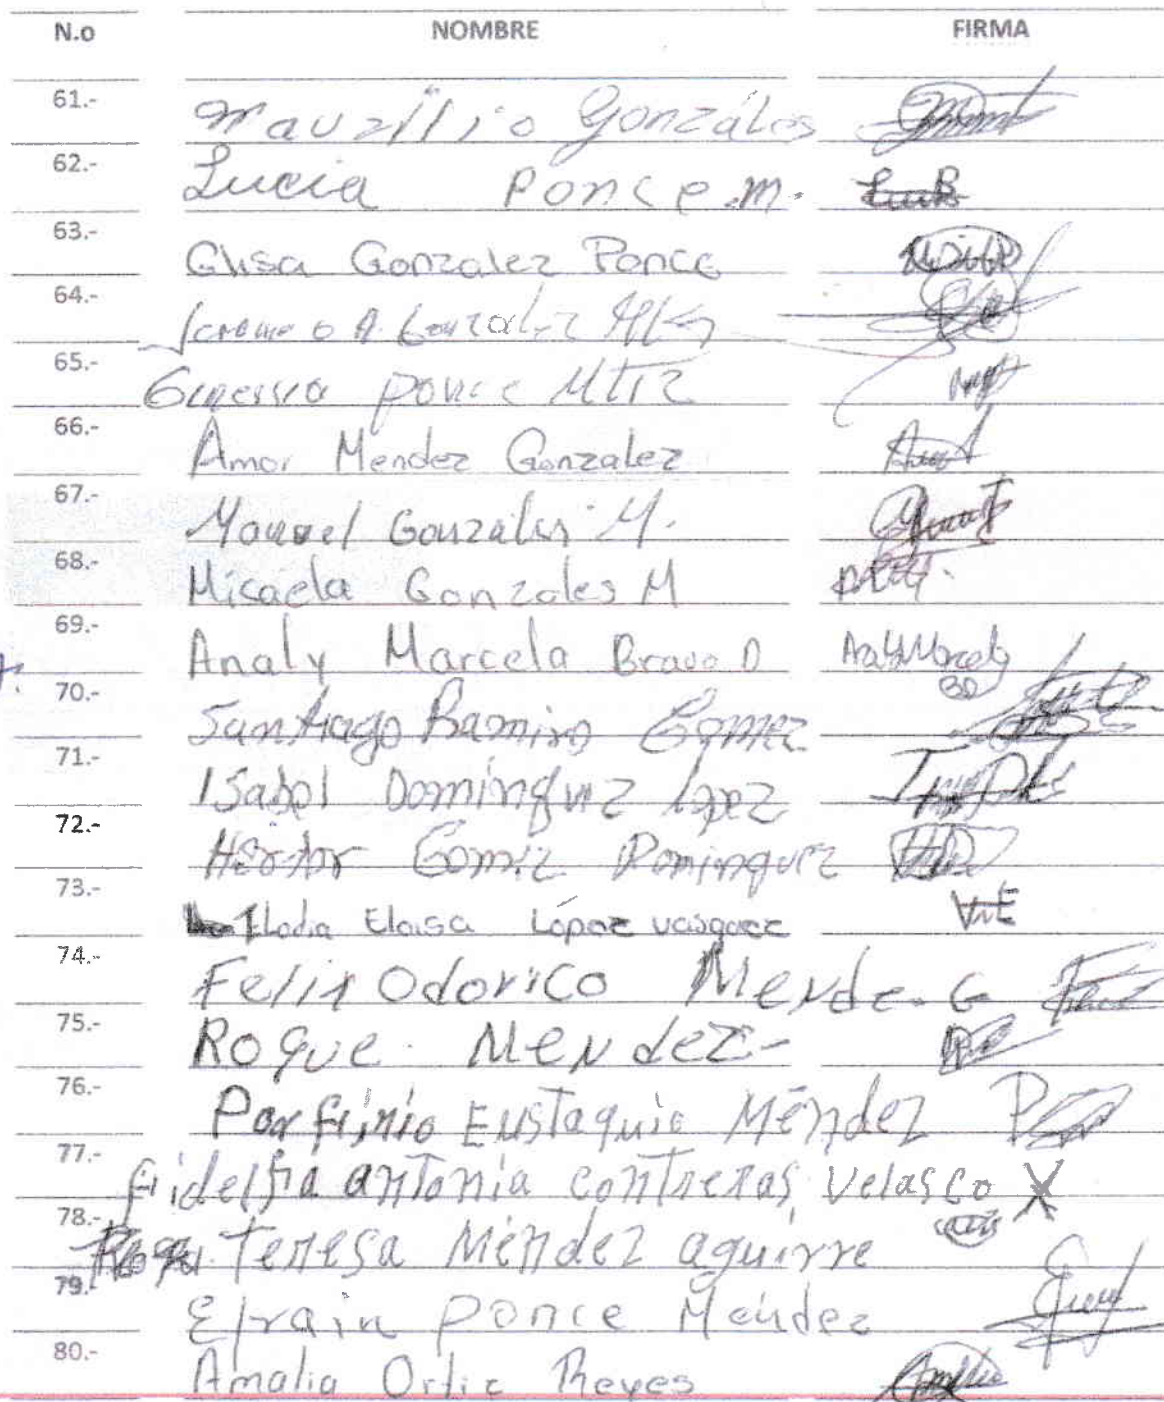 N.o NOMBRE FIRMA
61.- Mauzilio Gonzáles
62.- Lucia Ponce.m.
63.- Elisa Gonzalez Ponce
64.- A. Gonzalez
65.- Ponce Mtiz
66.- Amor Mendez Gonzalez
67.- Manuel Gonzáles M.
68.- Micaela Gonzales M
69.- Analy Marcela Bravo D
70.- Santiago Ramiro Gomez
71.- Isabel Dominguez Lopez
72.- Héctor Gomez Dominguez
73.- Elodia Eloisa López vasquez
74.- Felix Odorico Mende. G
75.- Roque. Mendez-
76.- Porfirio Eustaquio Méndez
77.- fidelfia antonia contreras Velasco X
78.- Rosa. Teresa Méndez aguirre
79.- Efrain Ponce Méndez
80.- Amalia Ortiz Reyes